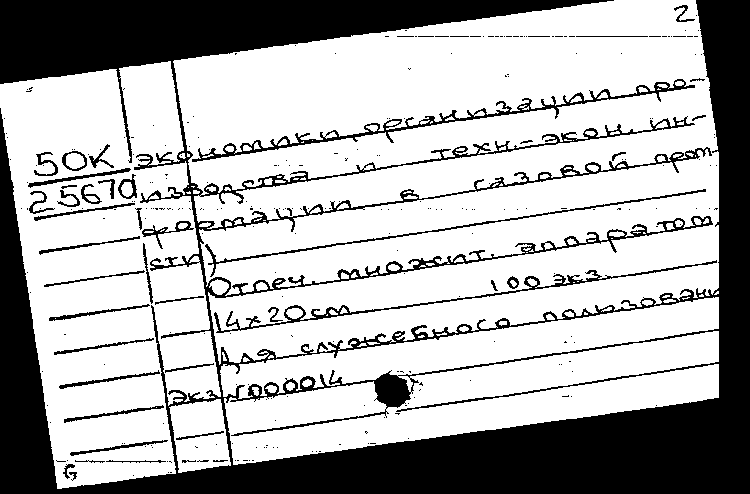 2
50К экономики, организации про-
25670 изводства и техн.-экон. ин-
формации в газовой пром-
сти).
Отпеч. множит. аппаратом,
14x20см 100 экз.
Для служебного пользовани
Экз. N000014
G